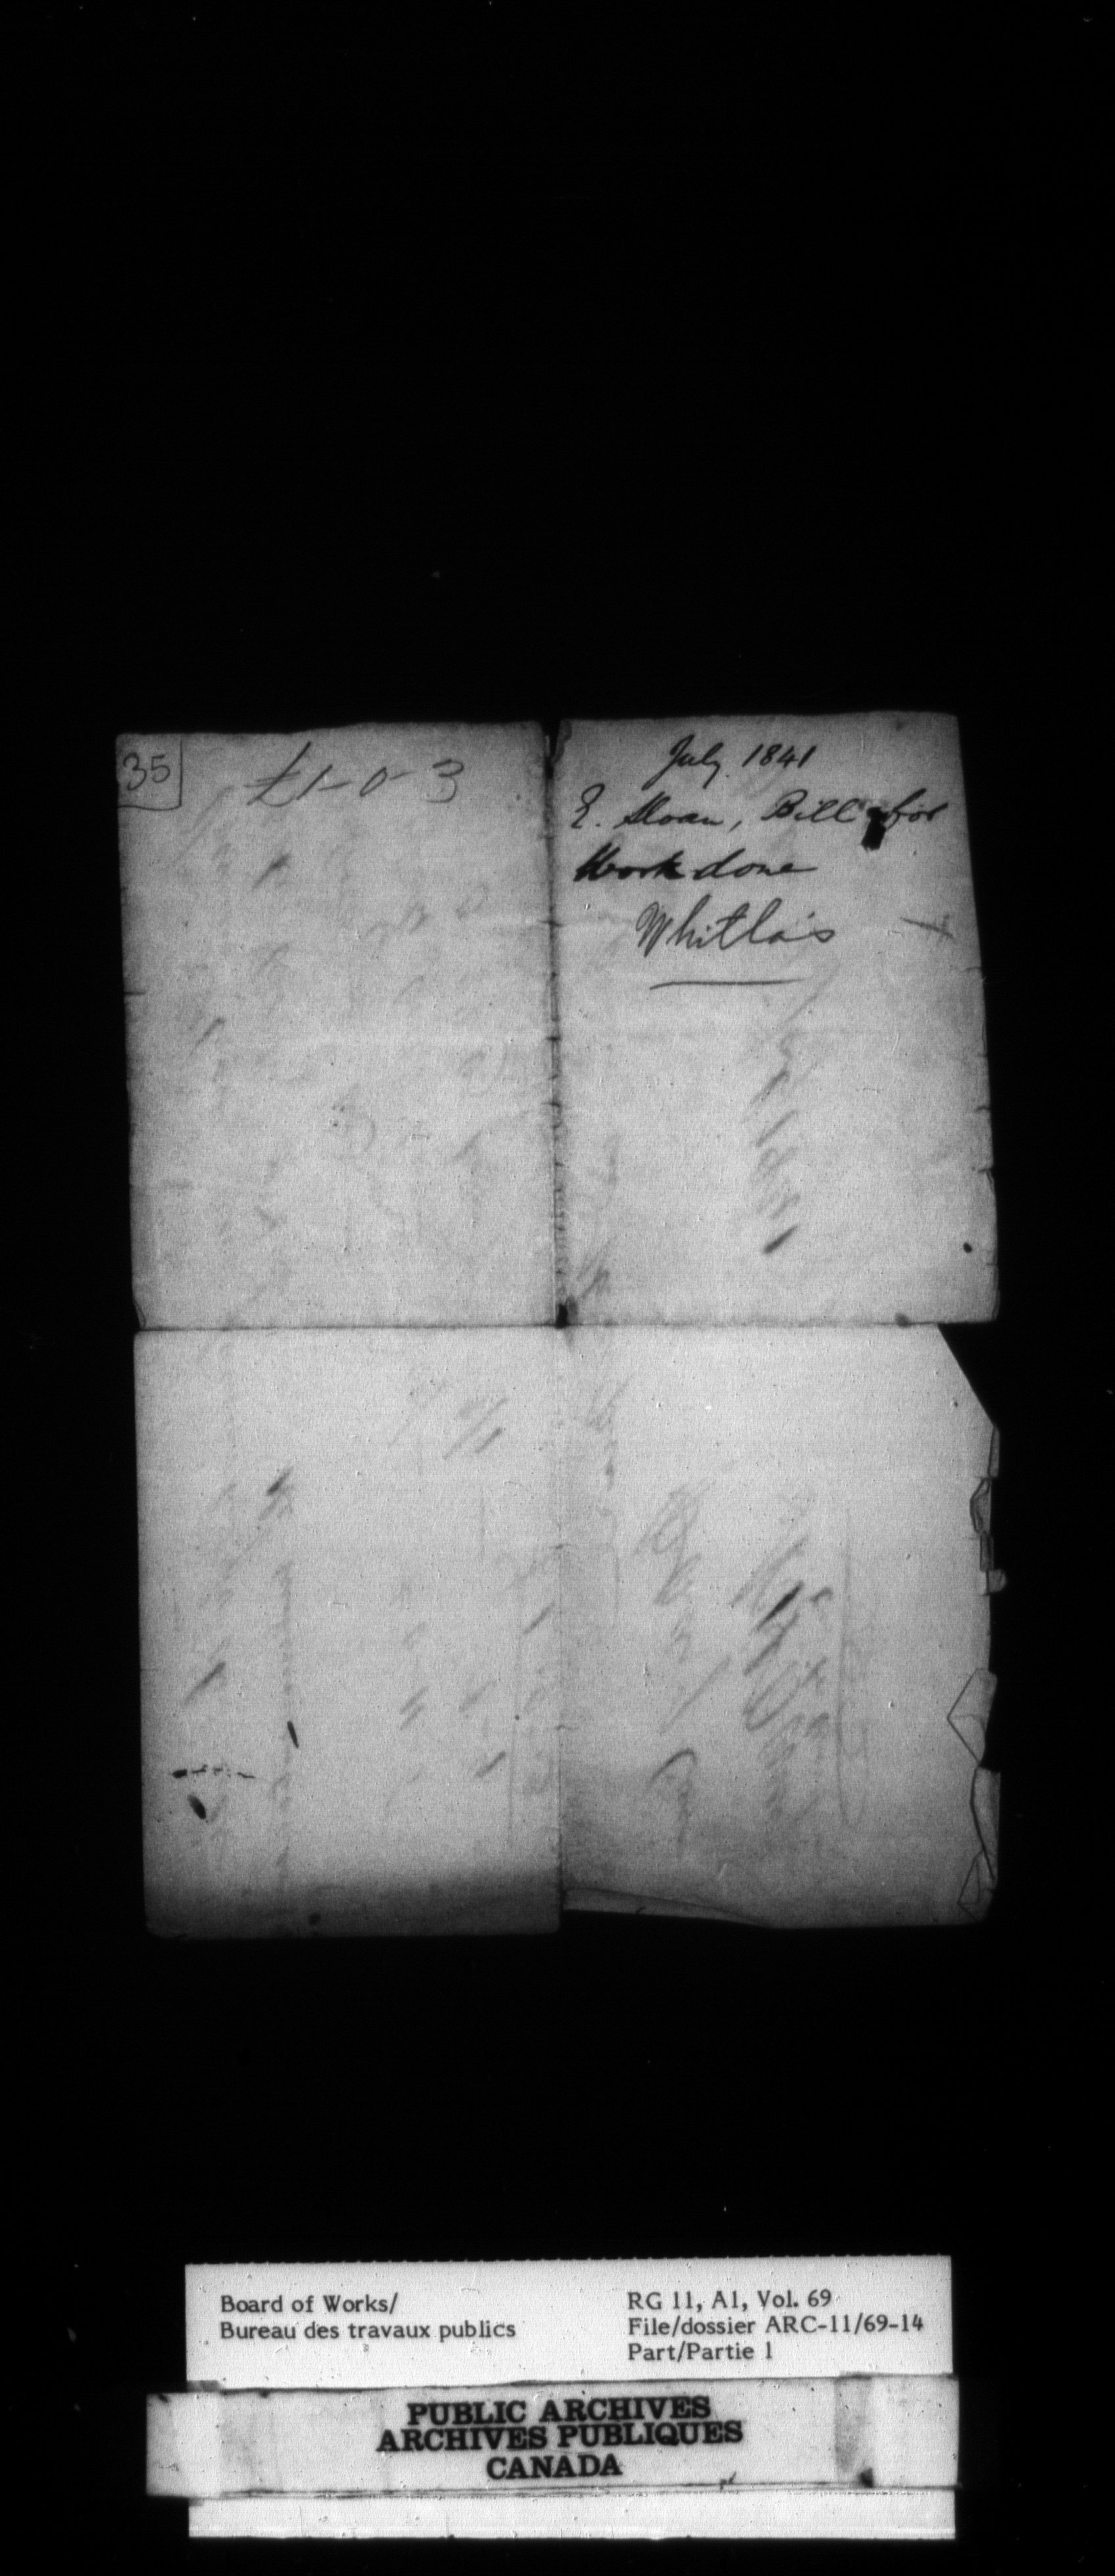 35
£1-0-3
July 1841
E. Sloan, Bill for
Work done
Whitla's
Board of Works/
Bureau des travaux publics
RG 11, A1, Vol. 69
File/dossier ARC-11/69-14
Part/Partie 1
PUBLIC ARCHIVES
ARCHIVES PUBLIQUES
CANADA